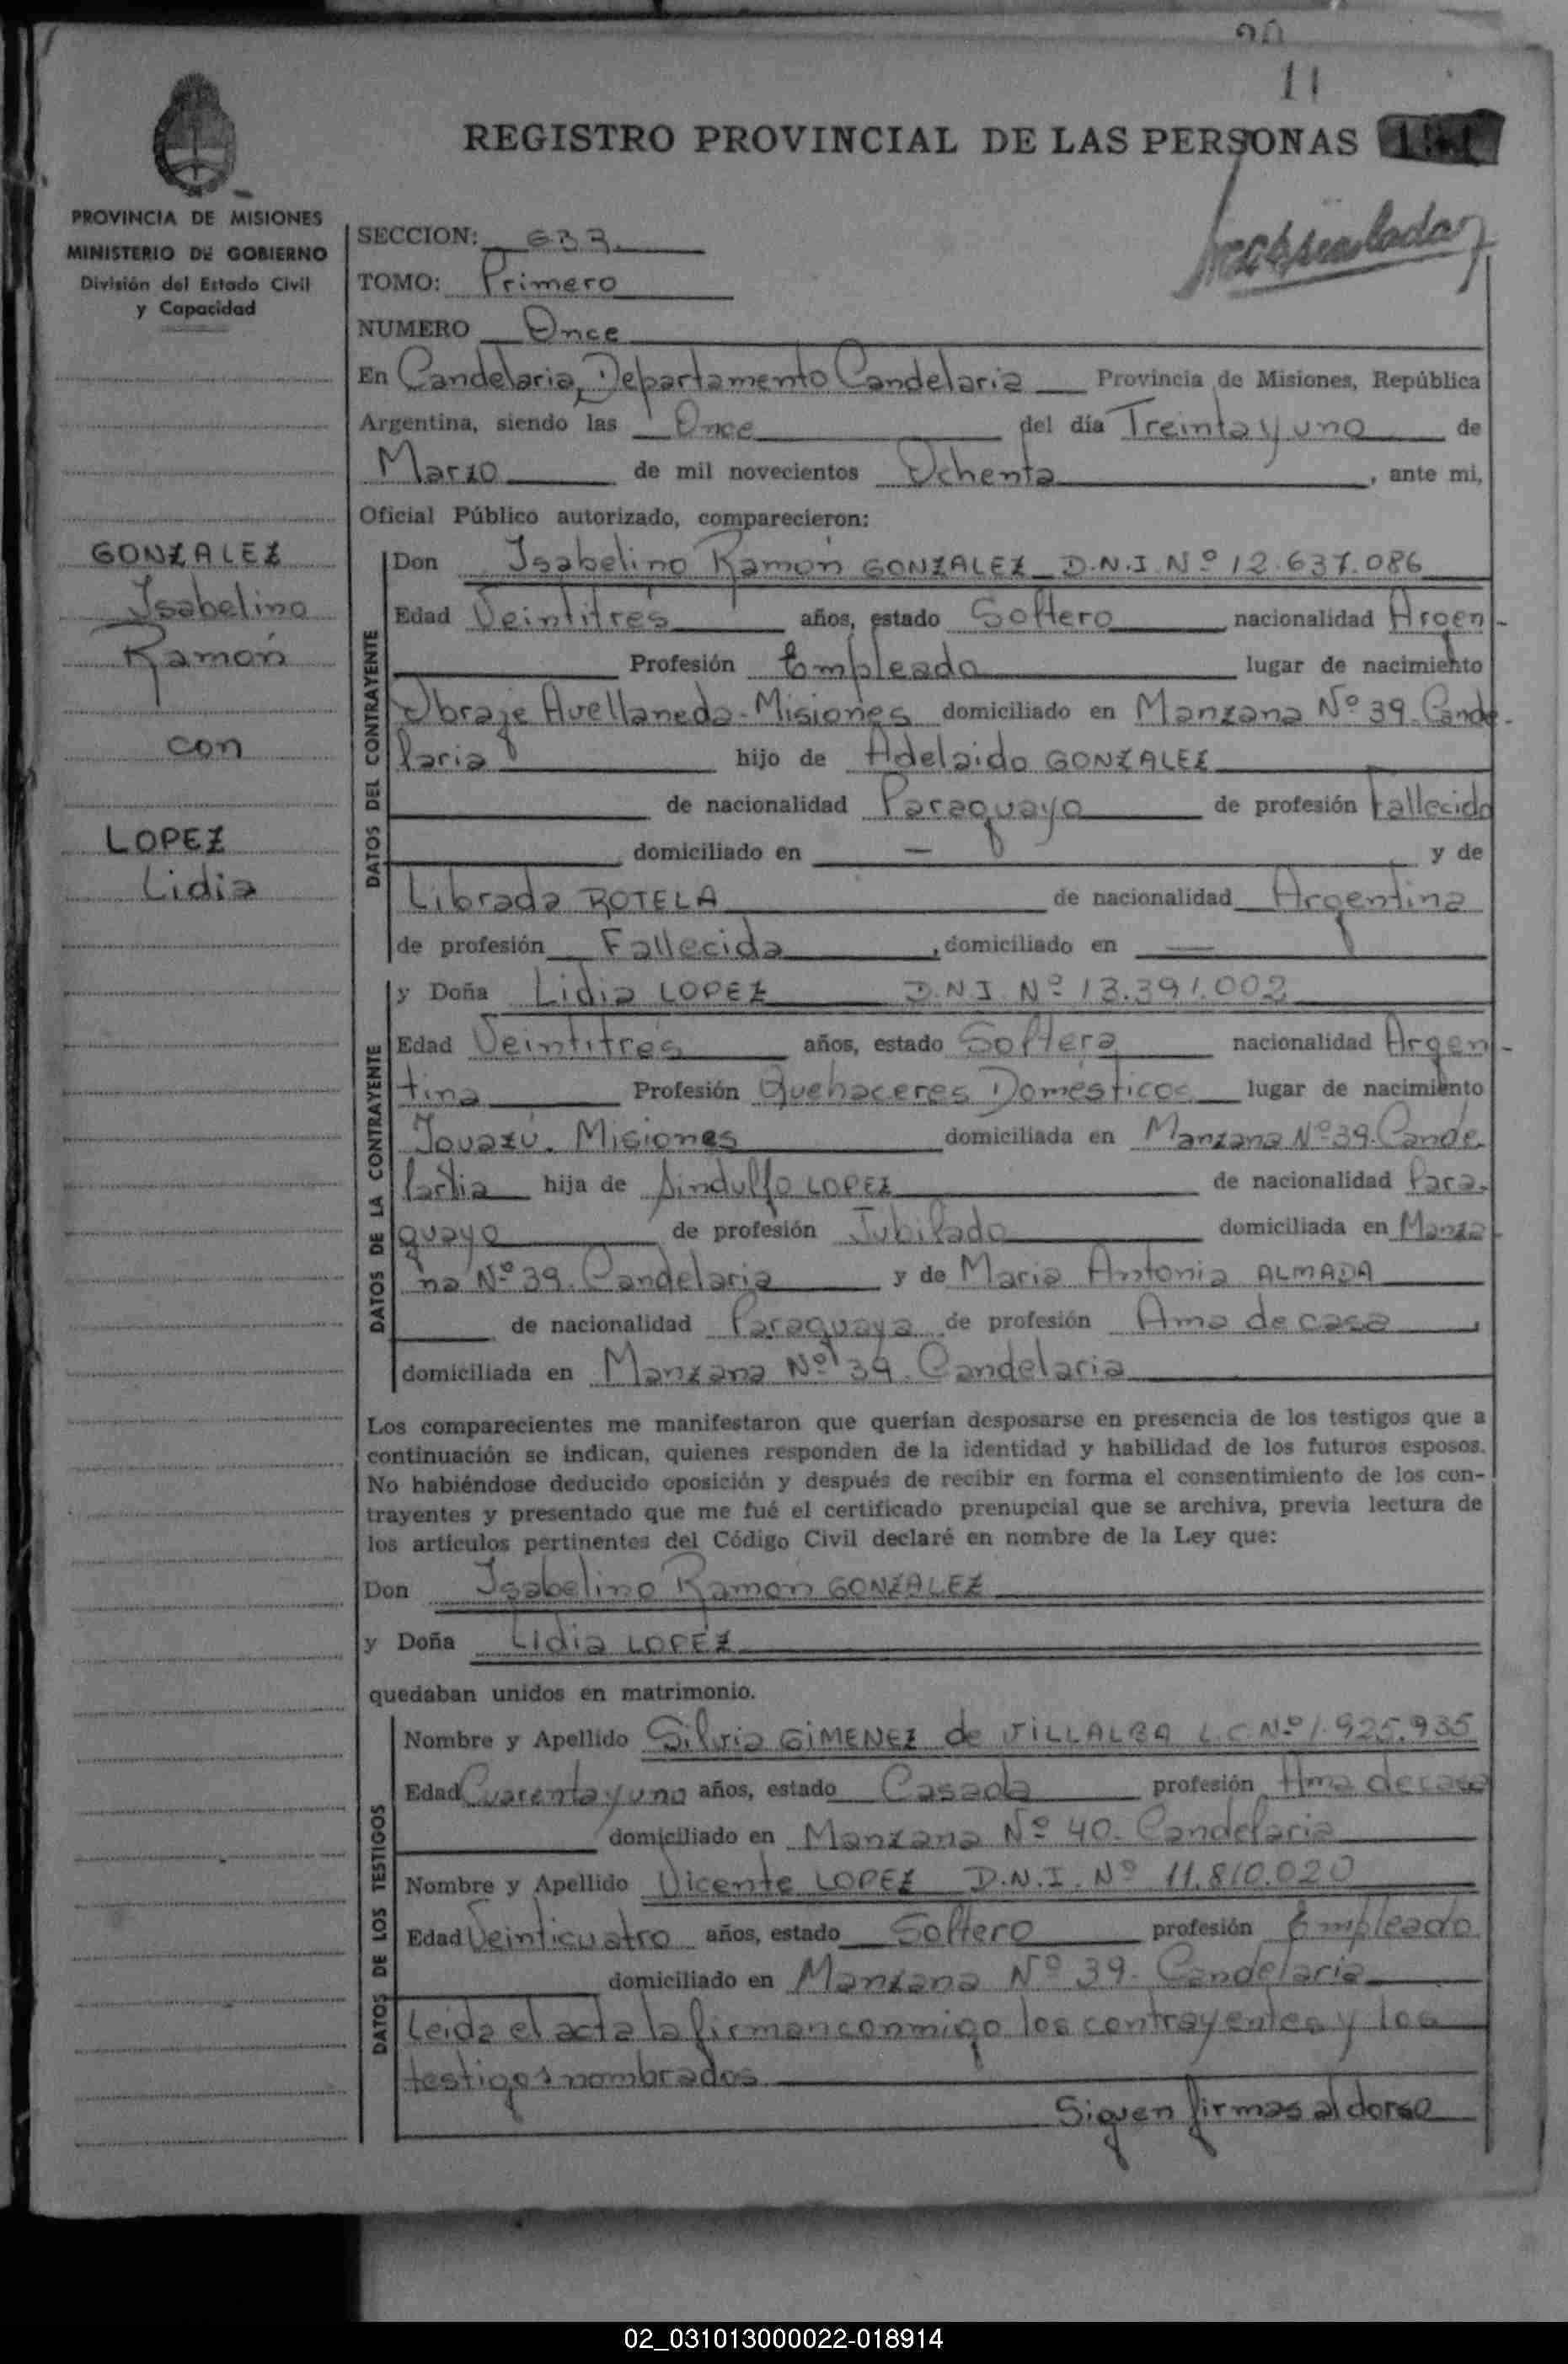 11
REGISTRO PROVINCIAL DE LAS PERSONAS
PROVINCIA DE MISIONES
MINISTERIO DE GOBIERNO
División del Estado Civil
y Capacidad
GONZALEZ
Isabelino
Ramón
con
LOPEZ
Lidia
SECCION:
TOMO: Primero
NUMERO Once
En Candelaria, Departamento Candelaria Provincia de Misiones, República
Argentina, siendo las Once del día Treinta y uno de
Marzo de mil novecientos Ochenta, ante mi,
Oficial Público autorizado, comparecieron:
DATOS DEL CONTRAYENTE
Don Isabelino Ramón GONZALEZ D.N.I Nº 12.637.086
Edad Veintitrés años, estado Soltero nacionalidad Argen-
Profesión Empleado lugar de nacimiento
Obraje Avellaneda - Misiones domiciliado en Manzana Nº 39 - Cande-
laria hijo de Adelaido GONZALEZ
de nacionalidad Paraguayo de profesión Fallecido
domiciliado en — y de
Librada ROTELA de nacionalidad Argentina
de profesión Fallecida, domiciliado en —
DATOS DE LA CONTRAYENTE
y Doña Lidia LOPEZ D.N.I Nº 13.391.002
Edad Veintitrés años, estado Soltera nacionalidad Argen-
tina Profesión Quehaceres Domésticos lugar de nacimiento
Misiones domiciliada en Manzana Nº 39. Cande
hija de Sindulfo LOPEZ de nacionalidad Para-
guayo de profesión Jubilado domiciliada en Manza-
na Nº 39. Candelaria y de Maria Antonia ALMADA
de nacionalidad Paraguaya de profesión Ama de casa
domiciliada en Manzana Nº 39. Candelaria
Los comparecientes me manifestaron que querían desposarse en presencia de los testigos que a
continuación se indican, quienes responden de la identidad y habilidad de los futuros esposos.
No habiéndose deducido oposición y después de recibir en forma el consentimiento de los con-
trayentes y presentado que me fué el certificado prenupcial que se archiva, previa lectura de
los artículos pertinentes del Código Civil declaré en nombre de la Ley que:
Don Isabelino Ramon GONZALEZ
y Doña Lidia LOPEZ
quedaban unidos en matrimonio.
DATOS DE LOS TESTIGOS
Nombre y Apellido Silvia GIMENEZ de VILLALBA L.C. Nº 1.925.935
Edad Cuarenta y uno años, estado Casada profesión Ama de casa
domiciliado en Manzana Nº 40 - Candelaria
Nombre y Apellido Vicente LOPEZ D.N.I. Nº 11.810.020
Edad Veinticuatro años, estado Soltero profesión Empleado
domiciliado en Manzana Nº 39 - Candelaria
Leida el acta la firman conmigo los contrayentes y los
testigos nombrados
Siguen firmas al dorso
02_031013000022-018914